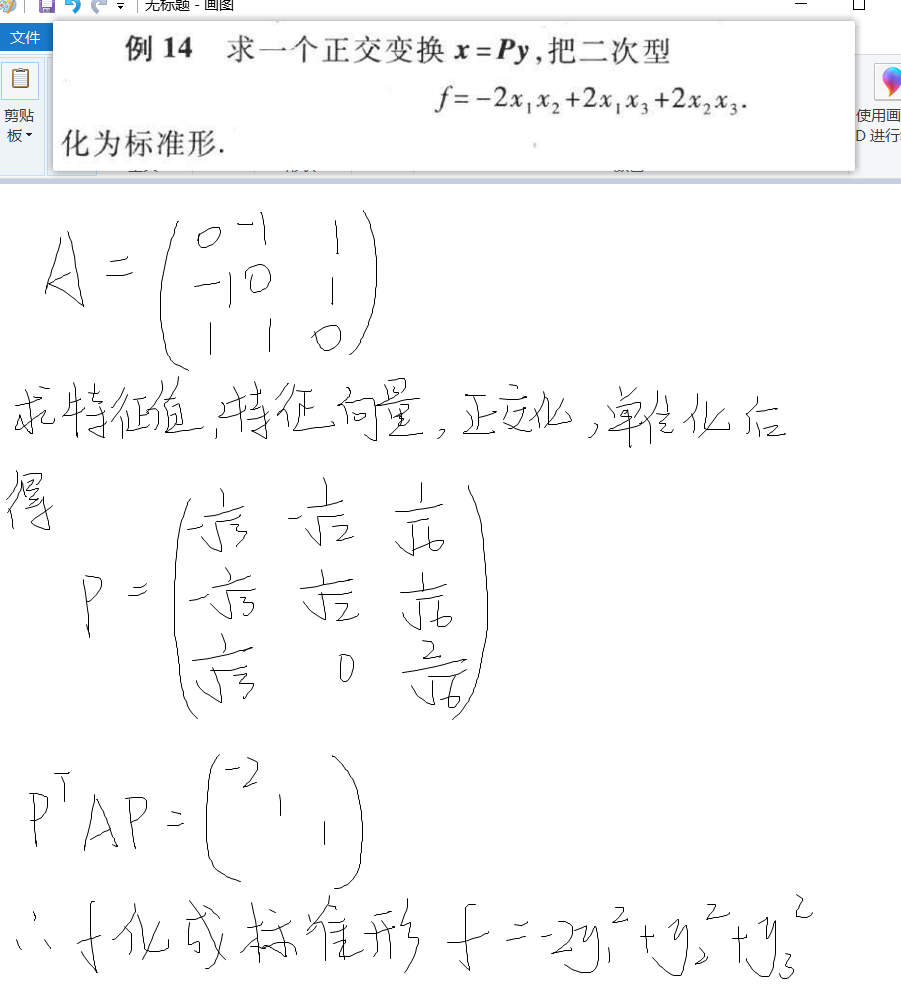 无标题 - 画图
文件
剪贴
板
使用画
D 进行
例 14 求一个正交变换 x=Py,把二次型
f=-2x₁x₂+2x₁x₃+2x₂x₃.
化为标准形.
A = (0 -1 1
-1 0 1
1 1 0)
求特征值,特征向量,正交化,单位化后
得
P = (-1/√3 -1/√2 1/√6
-1/√3 1/√2 1/√6
1/√3 0 2/√6)
PᵀAP = (-2
1
1)
∴ f化成标准形 f = -2y₁²+y₂²+y₃²